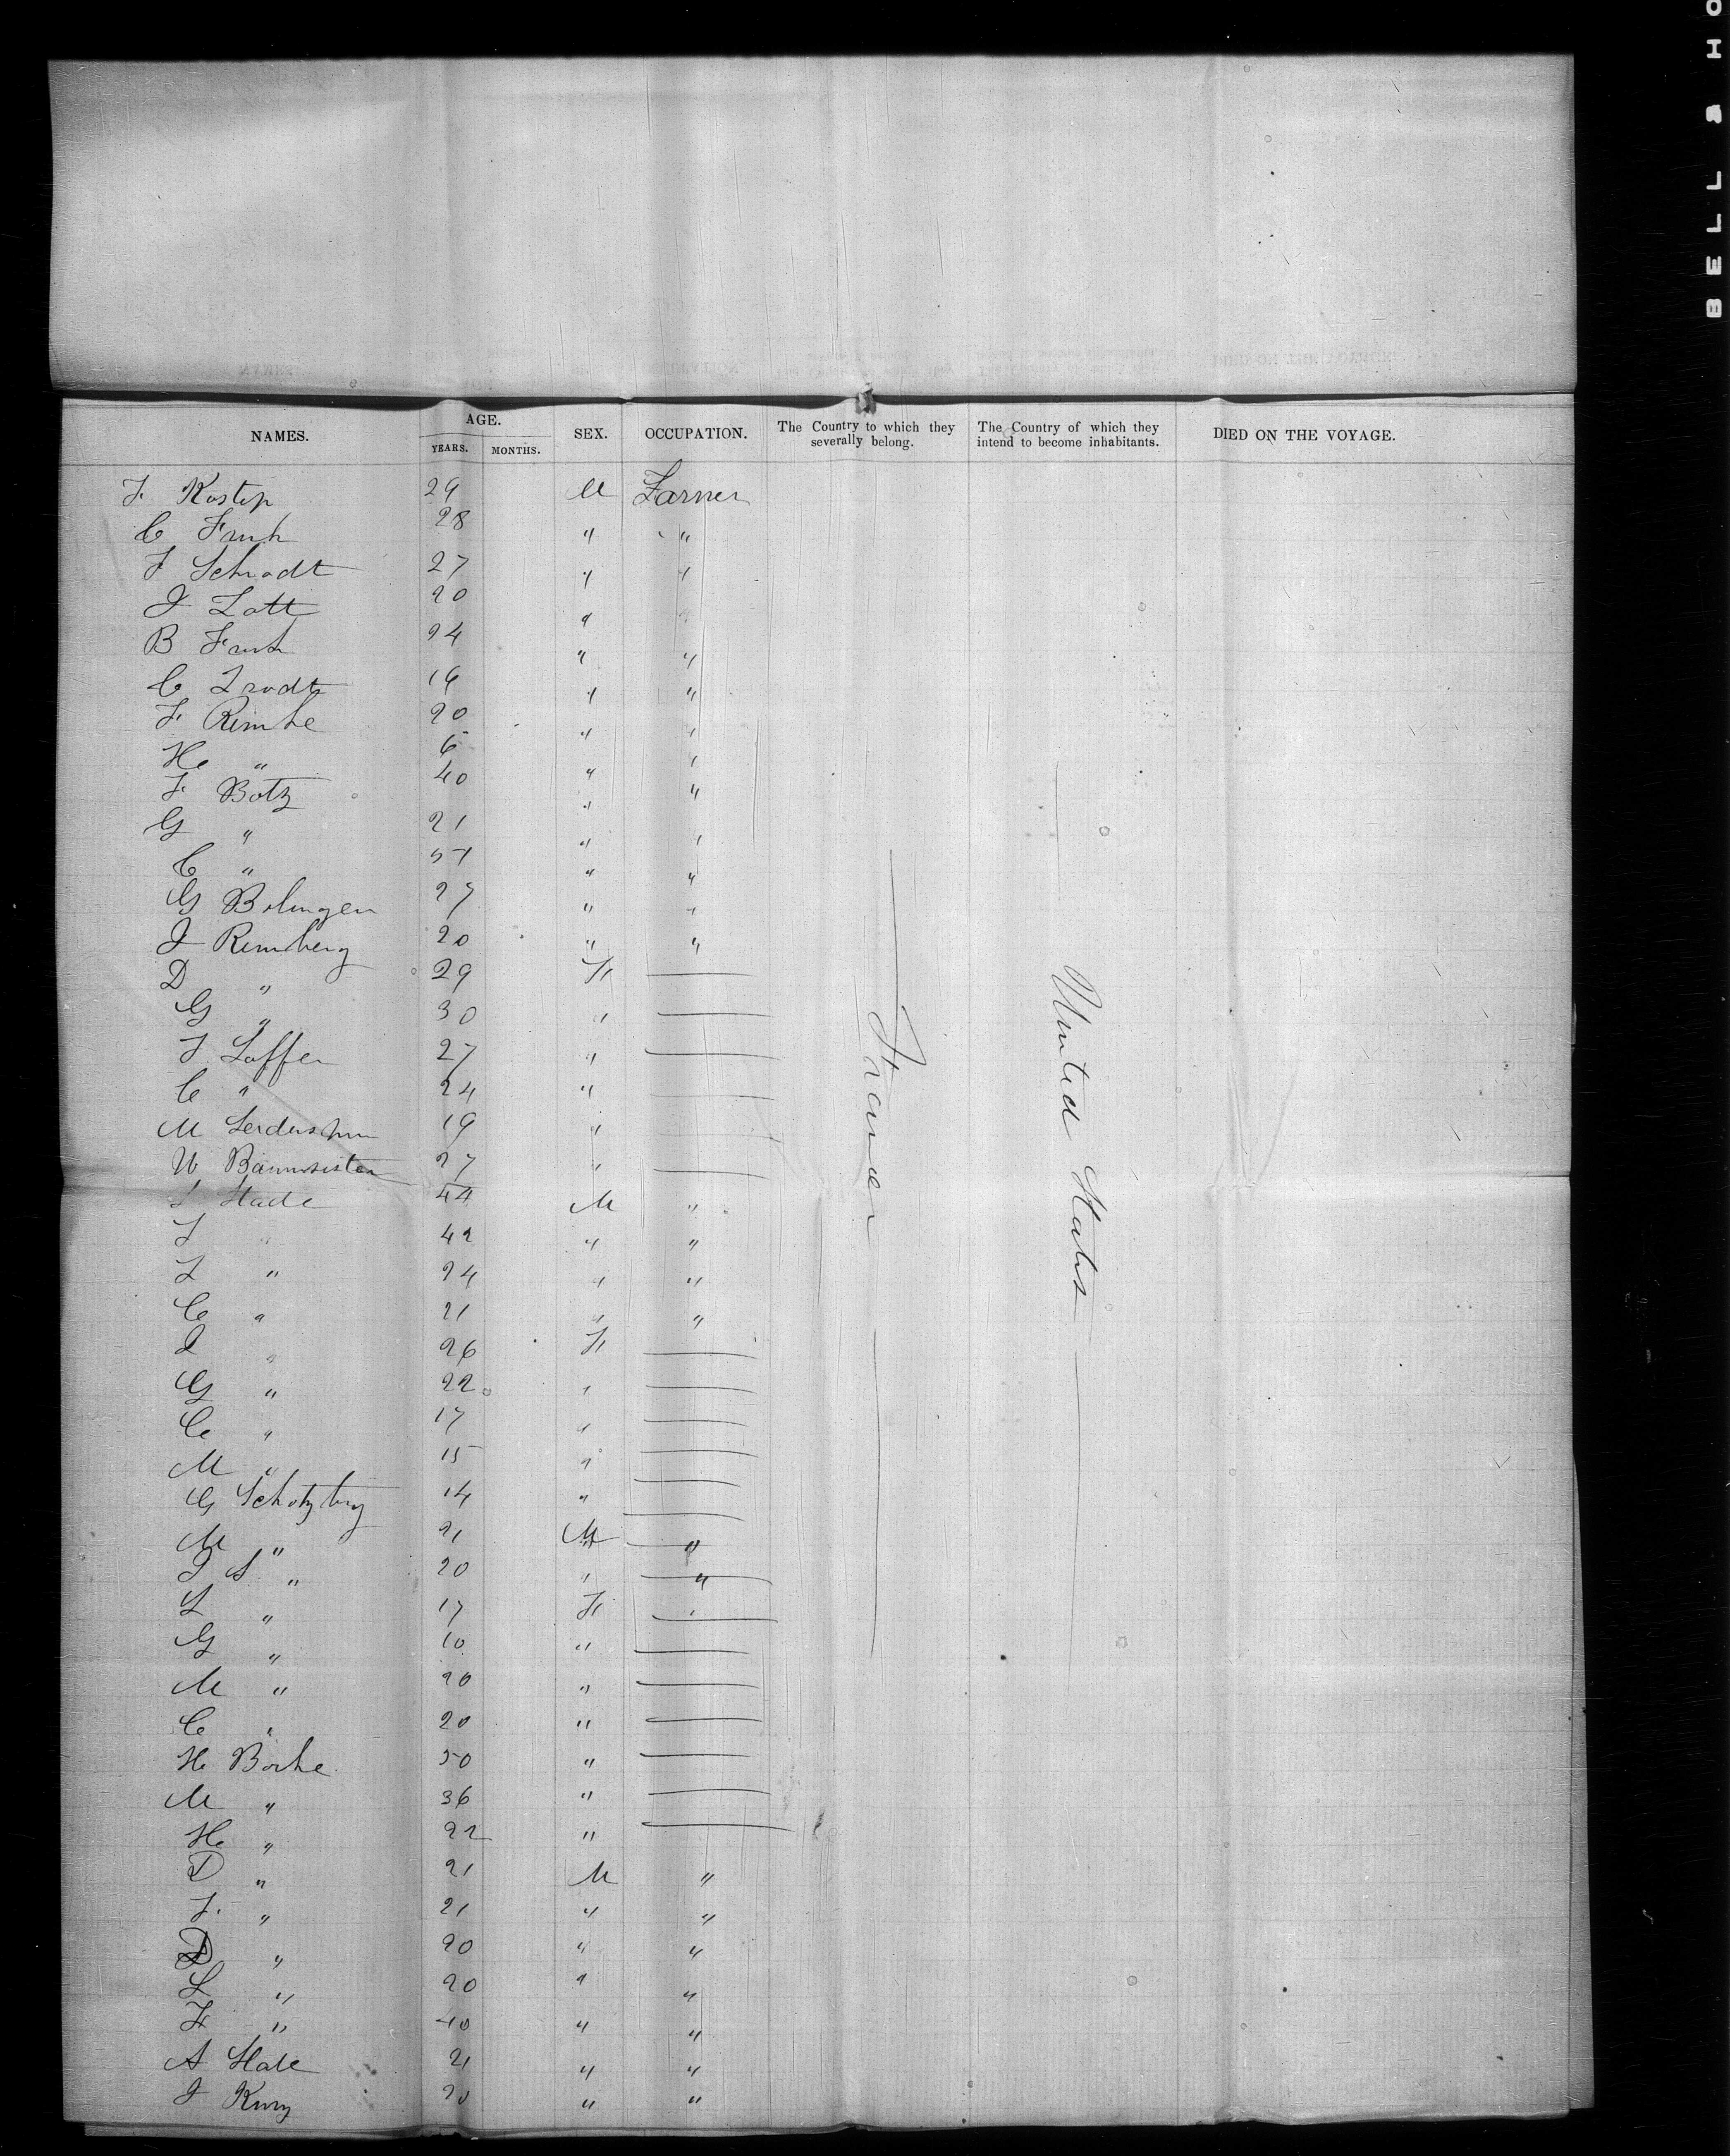 BELL & HO
NAMES. AGE. SEX. OCCUPATION. The Country to which they severally belong. The Country of which they intend to become inhabitants. DIED ON THE VOYAGE.
YEARS. MONTHS.
F. Kostep 29 M Farmer
C Frank 28 " "
F Schrodt 27 " "
J Lott 20 " "
B Frank 24 " "
C Lrodt 19 " "
F. Rimke 20 " "
He " 6 " "
F. Botz 40 " "
G " 21 " "
C " 57 " "
G Bolingen 27 " "
J Rimberg 20 " "
D " 29 F
G " 30 "
J Loffer 27 "
C " 24 "
M 19 "
W 27 "
Stade 44 M "
J " 42 " "
L " 24 " "
C " 21 " "
" 26 F
G " 22 "
C " 17 "
M " 15 "
G Schotzburg 14 "
M " 21 M "
J S " 20 " "
L " 17 F "
G " 10 "
M " 20 "
C " 20 "
H Borke 50 "
M " 36 "
He " 22 "
D " 21 M "
F. " 21 " "
D " 20 " "
L " 20 " "
F " 40 " "
A Stade 21 " "
J Kurz 20 " "
France
United States